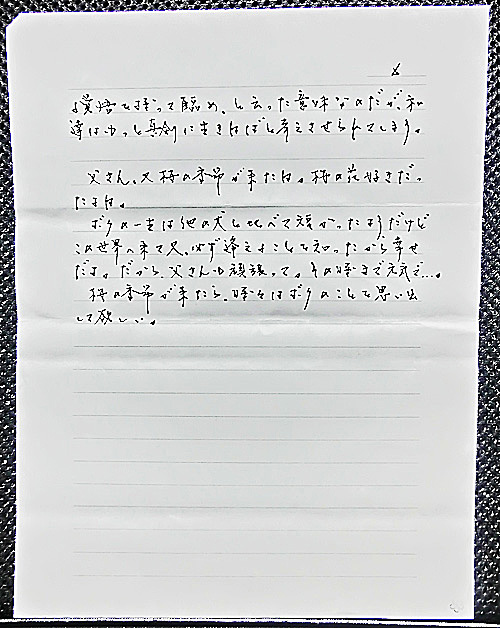 6
る覚悟を持って臨め、と云った意味なのだが、私
達はもっと真剣に生きねばと考えさせられてしまう。
父さん、又桜の季節が来たね。桜の花好きだっ
たよね。
ボクの一生は他の犬と比べて短かったようだけど
この世界へ来て又、必ず逢えることを知ったから幸せ
だよ。だから、父さんも頑張って。その時まで元気で…。
桜の季節が来たら、時々はボクのことを思い出
して欲しい。